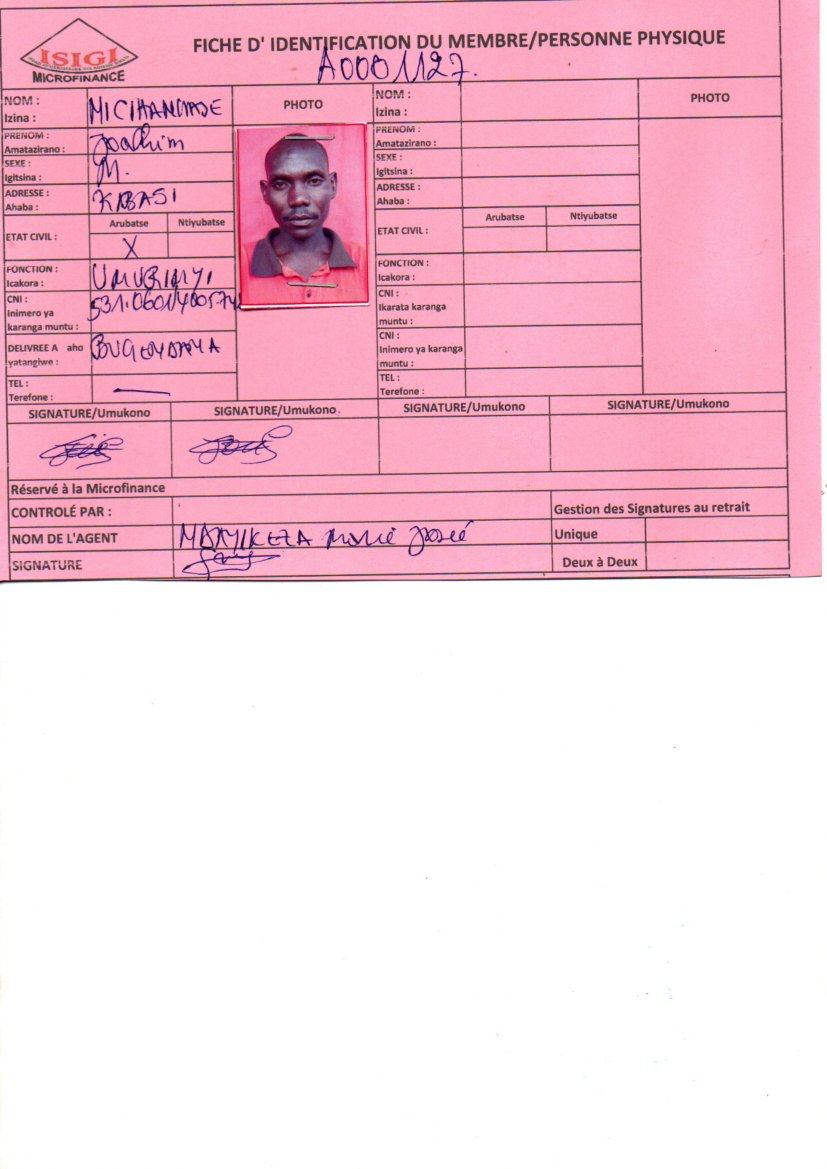 ISIGI
MICROFINANCE
FICHE D' IDENTIFICATION DU MEMBRE/PERSONNE PHYSIQUE
A0001127.
NOM :
Izina :
PHOTO
PRENOM :
Amatazirano :
Joachim
SEXE :
Igitsina :
M.
ADRESSE :
Ahaba :
KABASI
ETAT CIVIL :
Arubatse
Ntiyubatse
X
FONCTION :
Icakora :
UMURIMYI
CNI :
Inimero ya
karanga muntu :
DELIVREE A aho
yatangiwe :
BUGENDANA
TEL :
Terefone :
NOM :
Izina :
PHOTO
PRENOM :
Amatazirano :
SEXE :
Igitsina :
ADRESSE :
Ahaba :
ETAT CIVIL :
Arubatse
Ntiyubatse
FONCTION :
Icakora :
CNI :
Ikarata karanga
muntu :
CNI :
Inimero ya karanga
muntu :
TEL :
Terefone :
SIGNATURE/Umukono
SIGNATURE/Umukono.
SIGNATURE/Umukono
SIGNATURE/Umukono
Réservé à la Microfinance
CONTROLÉ PAR :
Gestion des Signatures au retrait
NOM DE L'AGENT
Marie Josée
Unique
SIGNATURE
Deux à Deux